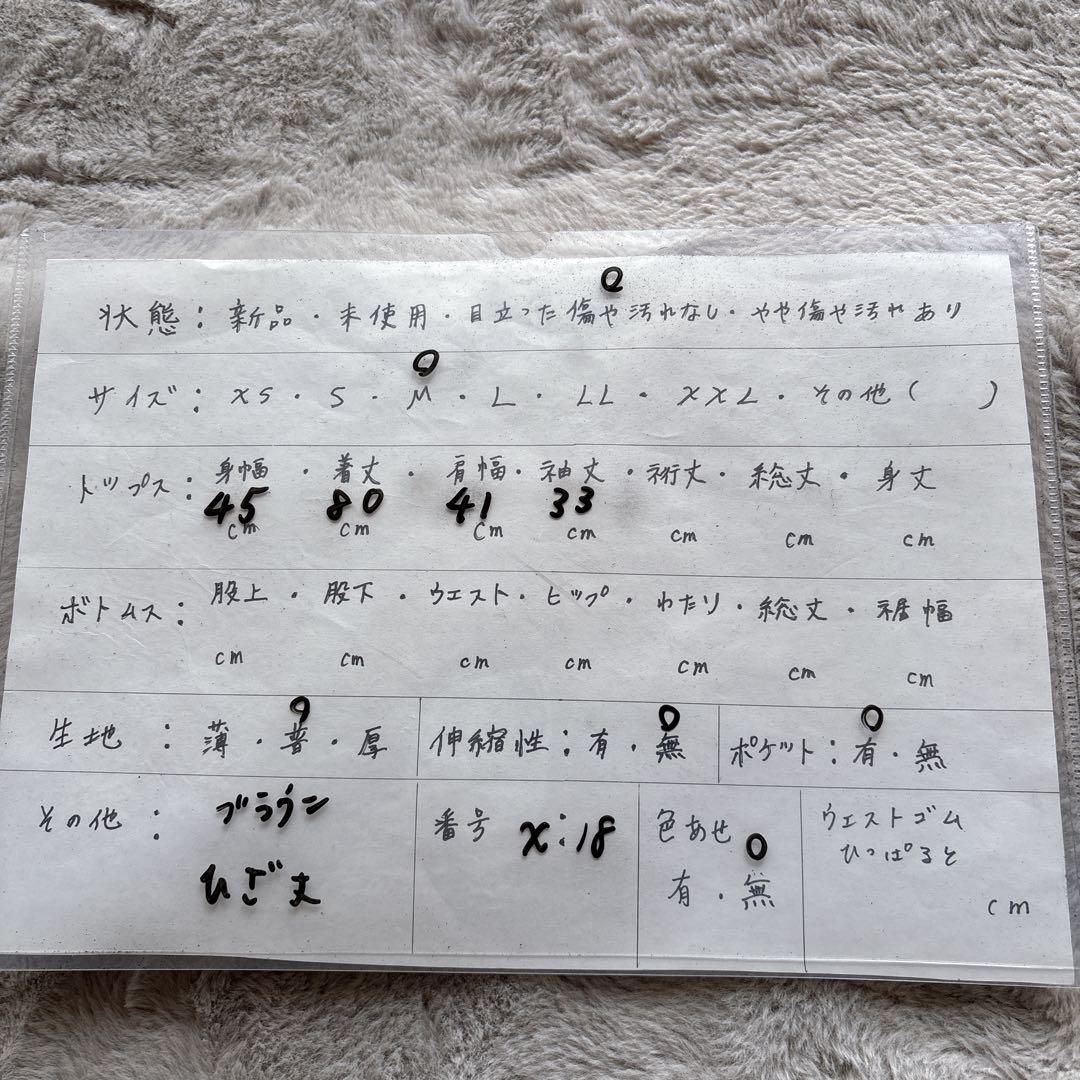 状態：新品・未使用・目立った傷や汚れなし・やや傷や汚れあり
サイズ：XS・S・M・L・LL・XXL・その他（　　）
トップス：身幅・着丈・肩幅・袖丈・裄丈・総丈・身丈
45 80 41 33
cm cm cm cm cm cm cm
ボトムス：股上・股下・ウエスト・ヒップ・わたり・総丈・裾幅
cm cm cm cm cm cm cm
生地：薄・普・厚 伸縮性：有・無 ポケット：有・無
その他：ブラウン
ひざ丈
番号 X:18
色あせ
有・無
ウエストゴム
ひっぱると
cm